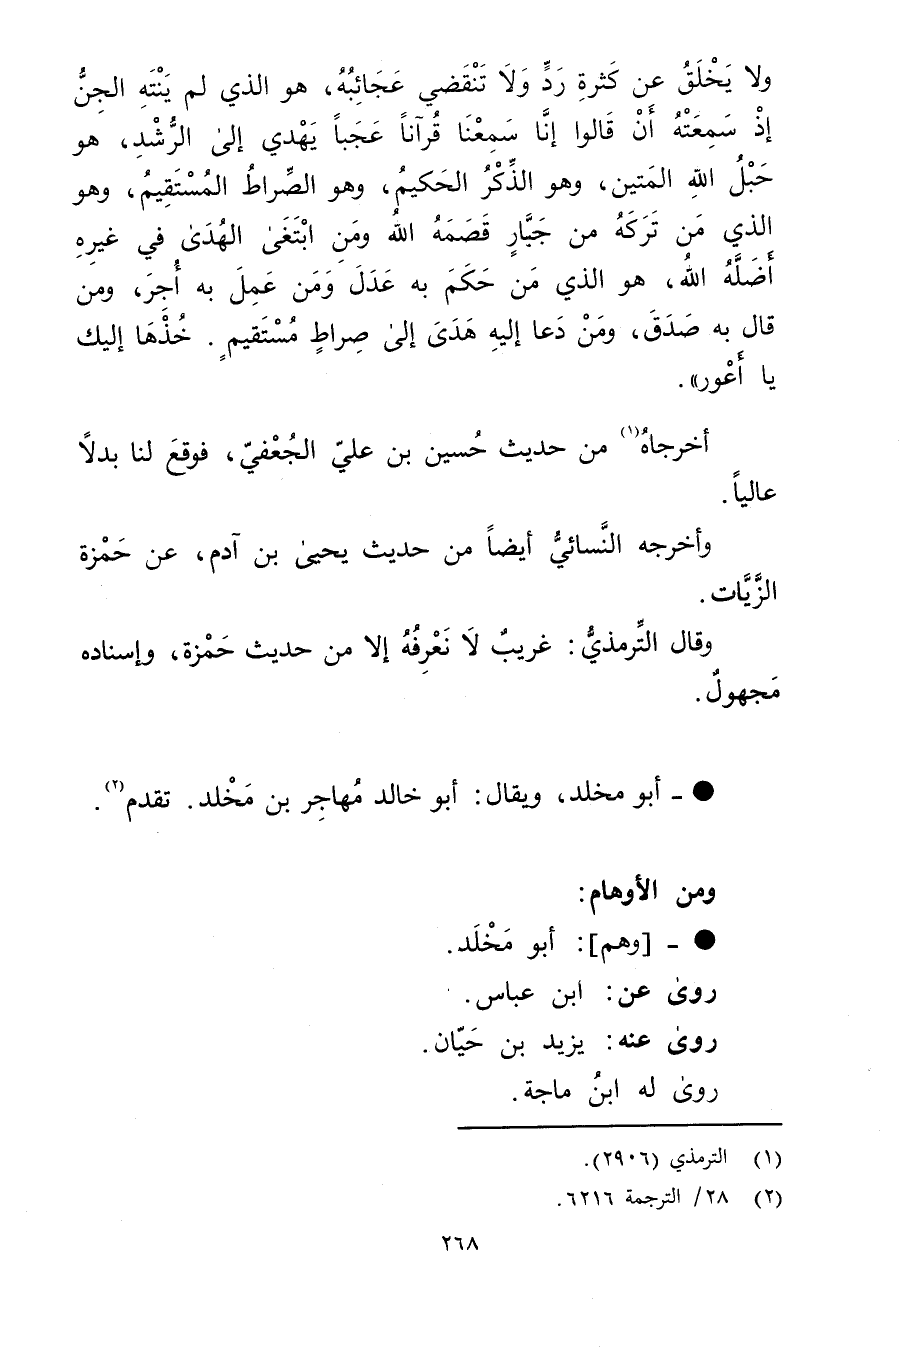 ولا يَخْلَقُ عن كَثرةِ رَدٍّ وَلَا تَنْقَضي عَجَائِبُهُ، هو الذي لم يَنْتَهِ الجِنُّ
إذْ سَمِعَتْهُ أَنْ قَالوا إنَّا سَمِعْنَا قُرآناً عَجَباً يَهْدي إلىٰ الرُّشْدِ، هو
حَبْلُ اللهِ المَتين، وهو الذِّكْرُ الحَكيمُ، وهو الصِّراطُ المُسْتَقِيمُ، وهو
الذي مَن تَرَكَهُ من جَبَّارٍ قَصَمَهُ اللهُ ومَنِ ابْتَغَىٰ الهُدَىٰ في غيرِهِ
أَضَلَّهُ اللهُ، هو الذي مَن حَكَمَ به عَدَلَ وَمَن عَمِلَ به أُجِرَ، ومن
قال به صَدَقَ، ومَنْ دَعا إليهِ هَدَىَ إلىٰ صِراطٍ مُسْتَقيمٍ. خُذْهَا إليك
يا أَعْور».
أخرجاهُ(١) من حديث حُسين بن عليّ الجُعْفيّ، فوقعَ لنا بدلاً
عالياً.
وأخرجه النَّسائيُّ أيضاً من حديث يحيىٰ بن آدم، عن حَمْزة
الزَّيَّات.
وقال التِّرمذيُّ: غريبٌ لَا نَعْرِفُهُ إلا من حديث حَمْزة، وإسناده
مَجهولٌ.
● ـ أبو مخلد، ويقال: أبو خالد مُهاجِر بن مَخْلد. تقدم(٢).
ومن الأوهام:
● ـ [وهم]: أبو مَخْلَد.
روىٰ عن: ابن عباس.
روىٰ عنه: يزيد بن حَيّان.
روىٰ له ابنُ ماجة.
(١) الترمذي (٢٩٠٦).
(٢) ٢٨/ الترجمة ٦٢١٦.
٢٦٨